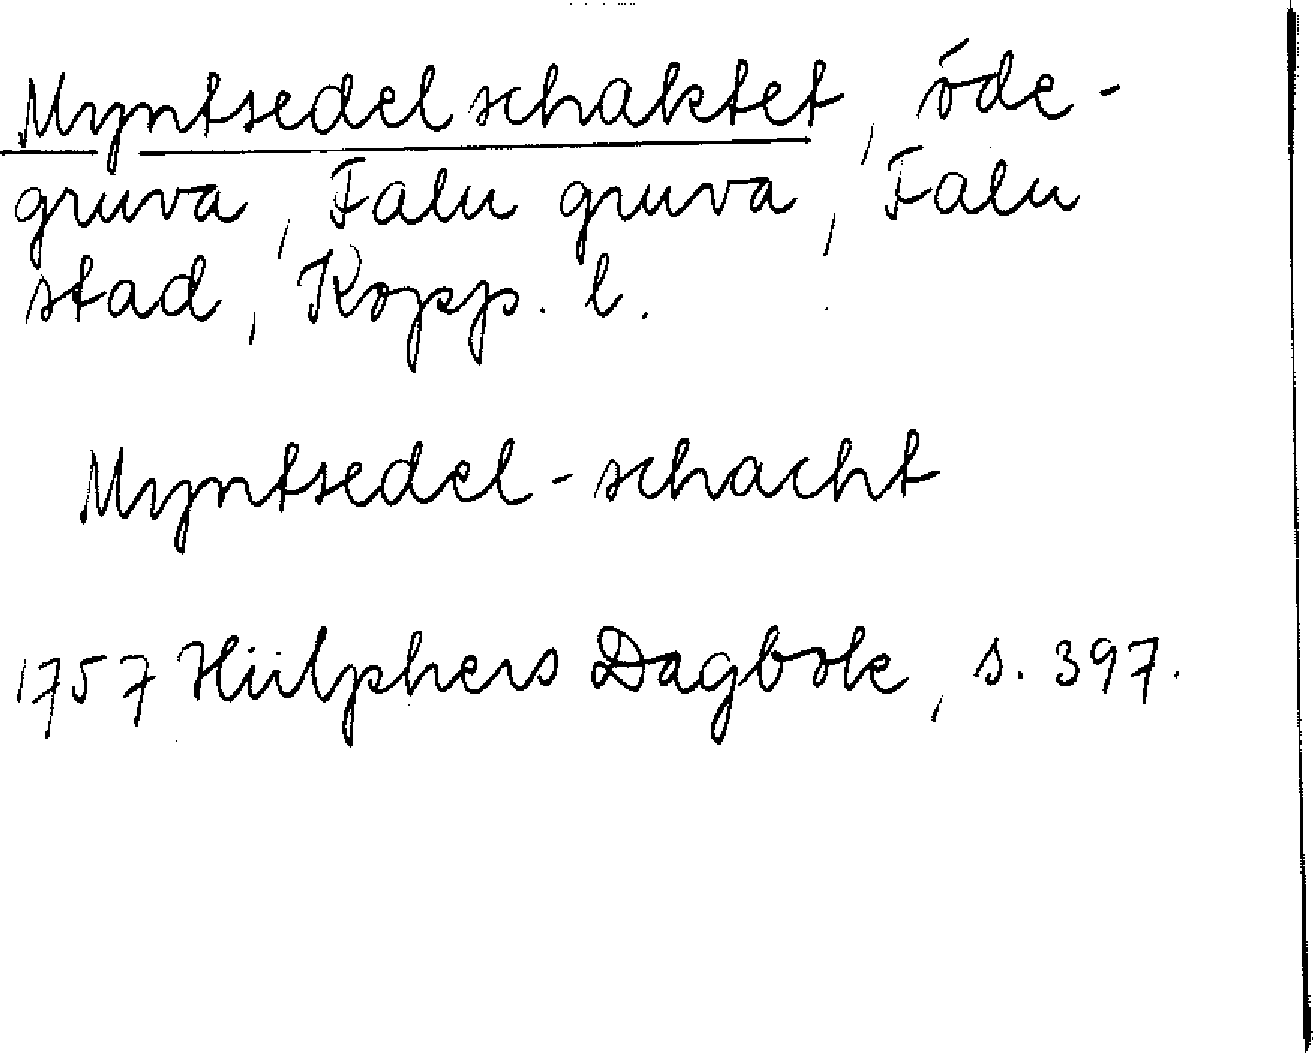 Myntsedelschaktet, öde-
gruva, Falu gruva, Falu
stad, Kopp. l.
Myntsedel-schacht
1757 Hülphers Dagbok, s. 397.